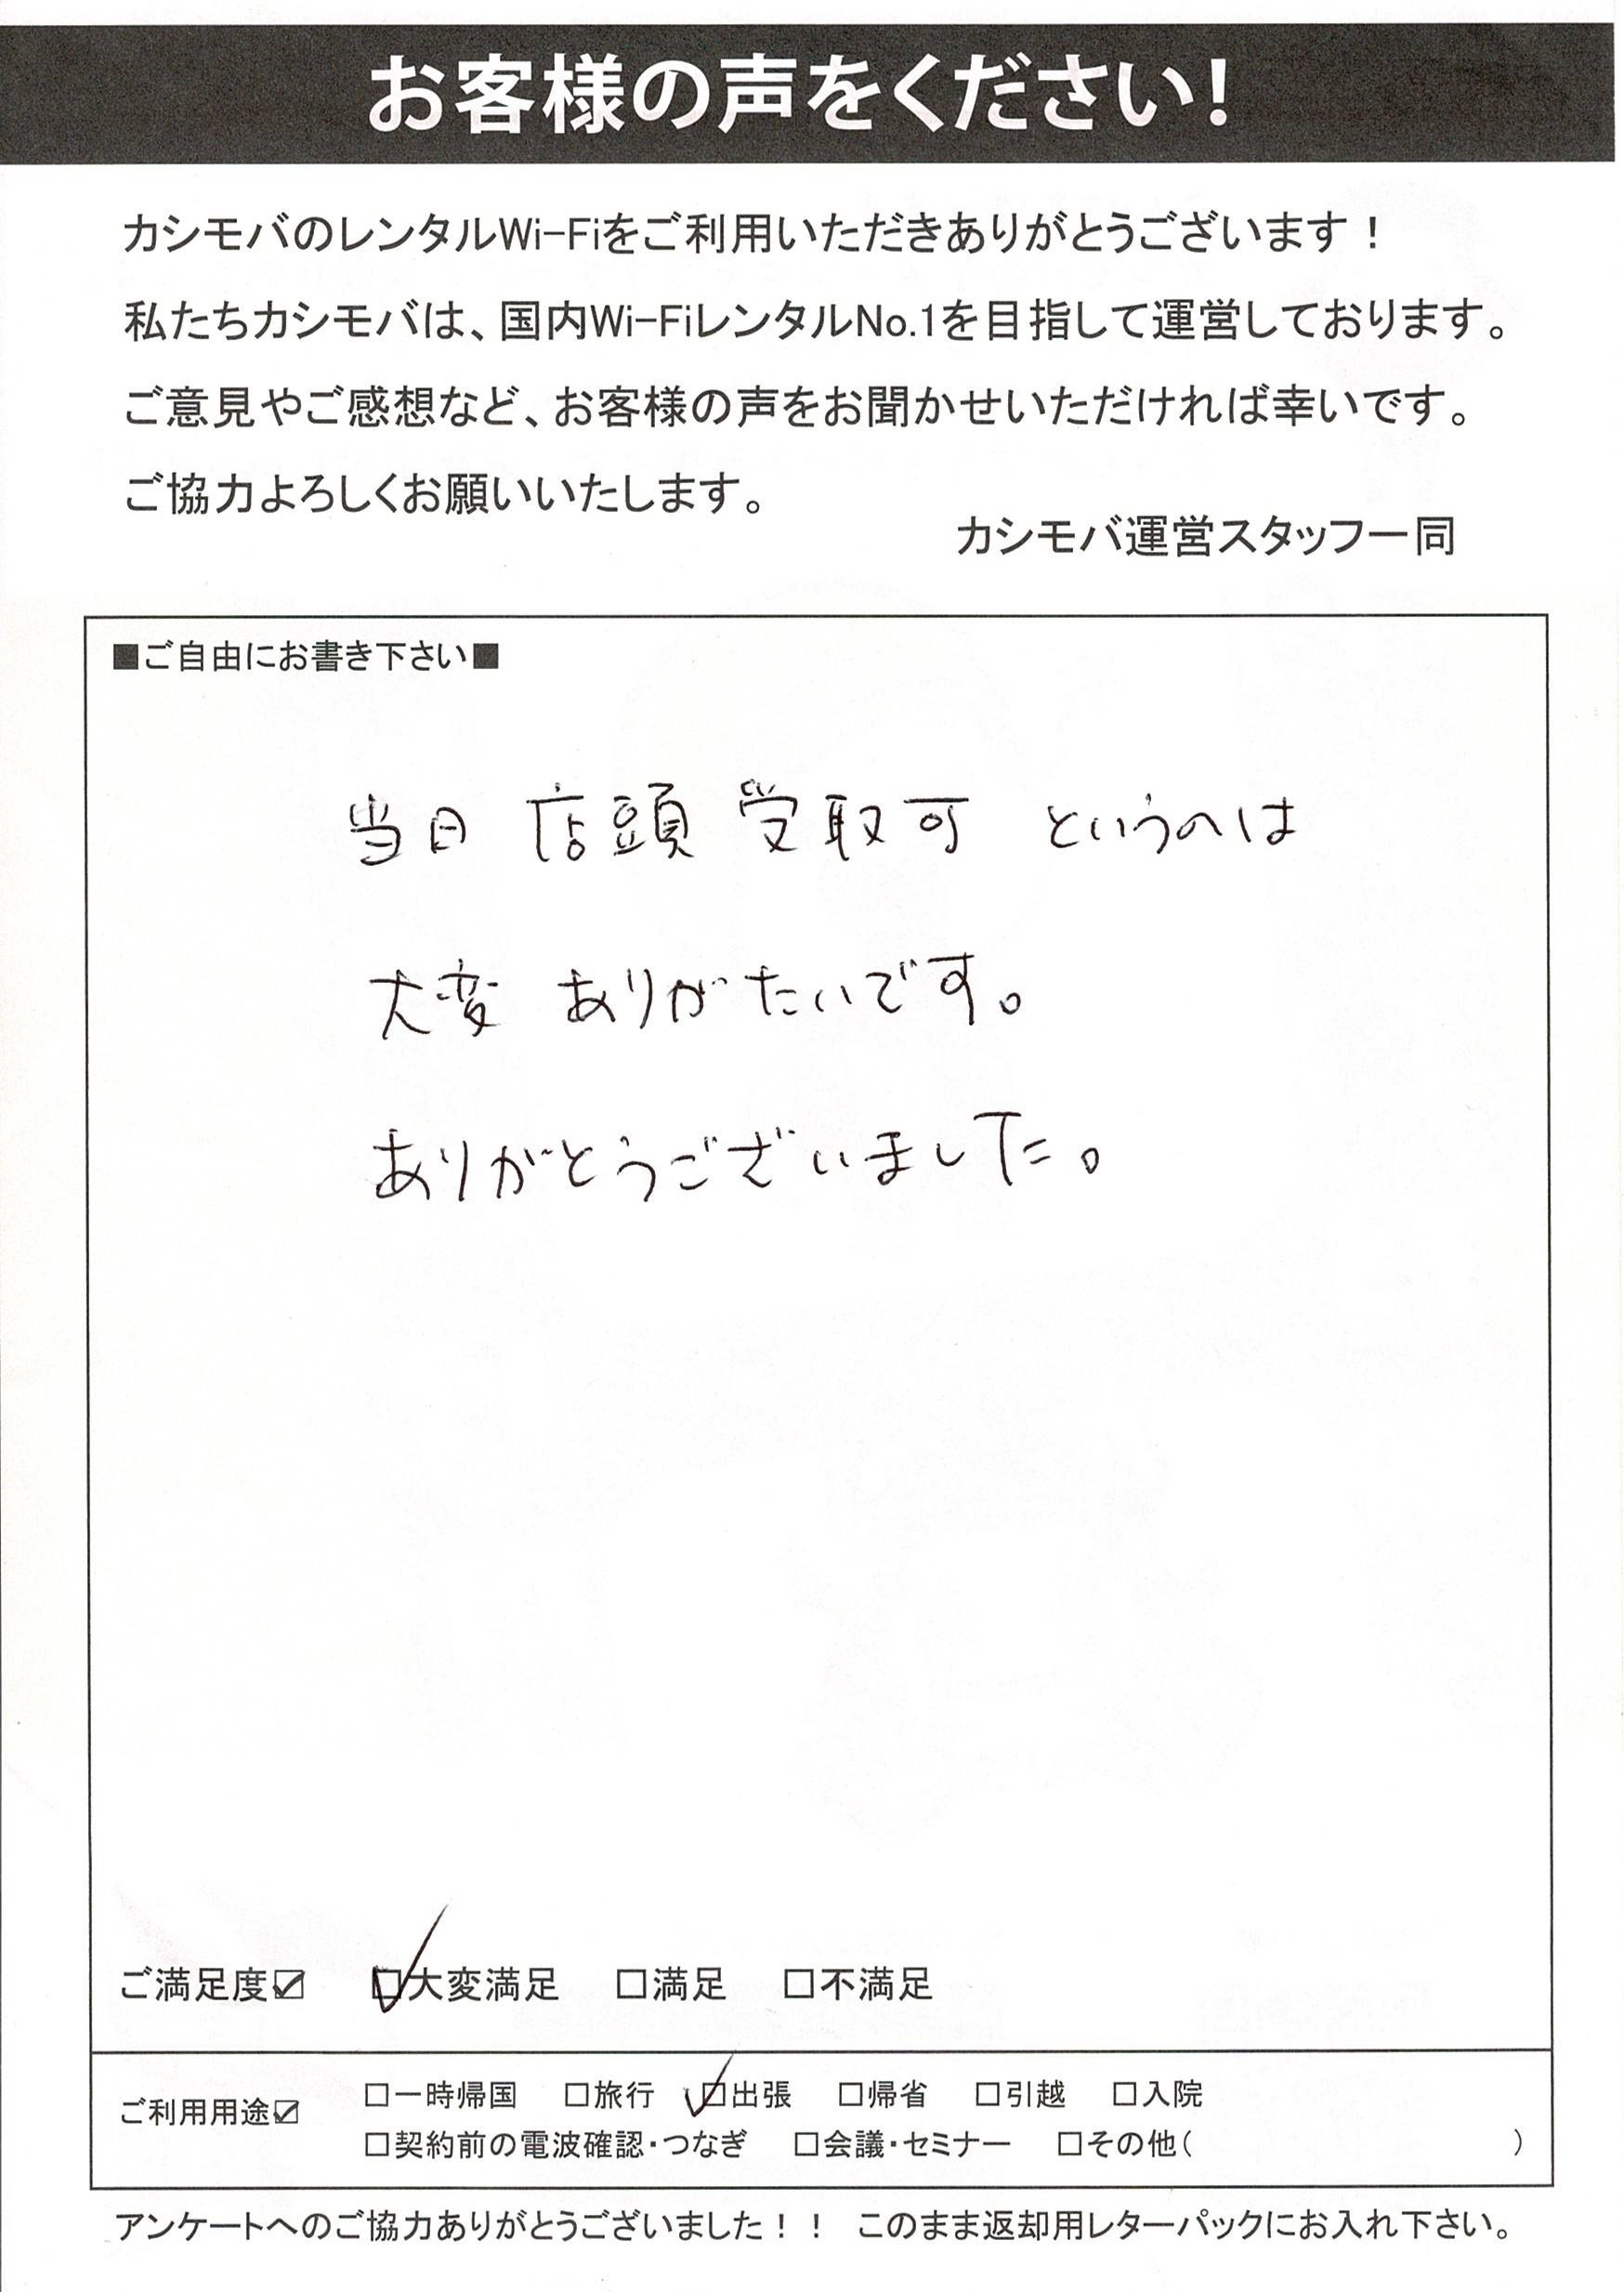 お客様の声をください!
カシモバのレンタルWi-Fiをご利用いただきありがとうございます！
私たちカシモバは、国内Wi-FiレンタルNo.1を目指して運営しております。
ご意見やご感想など、お客様の声をお聞かせいただければ幸いです。
ご協力よろしくお願いいたします。
カシモバ運営スタッフ一同
■ご自由にお書き下さい■
当日 店頭 受取可 というのは
大変 ありがたいです。
ありがとうございました。
ご満足度☑ ☑大変満足 □満足 □不満足
ご利用用途☑ □一時帰国 □旅行 ☑出張 □帰省 □引越 □入院
□契約前の電波確認・つなぎ □会議・セミナー □その他( )
アンケートへのご協力ありがとうございました！！ このまま返却用レターパックにお入れ下さい。